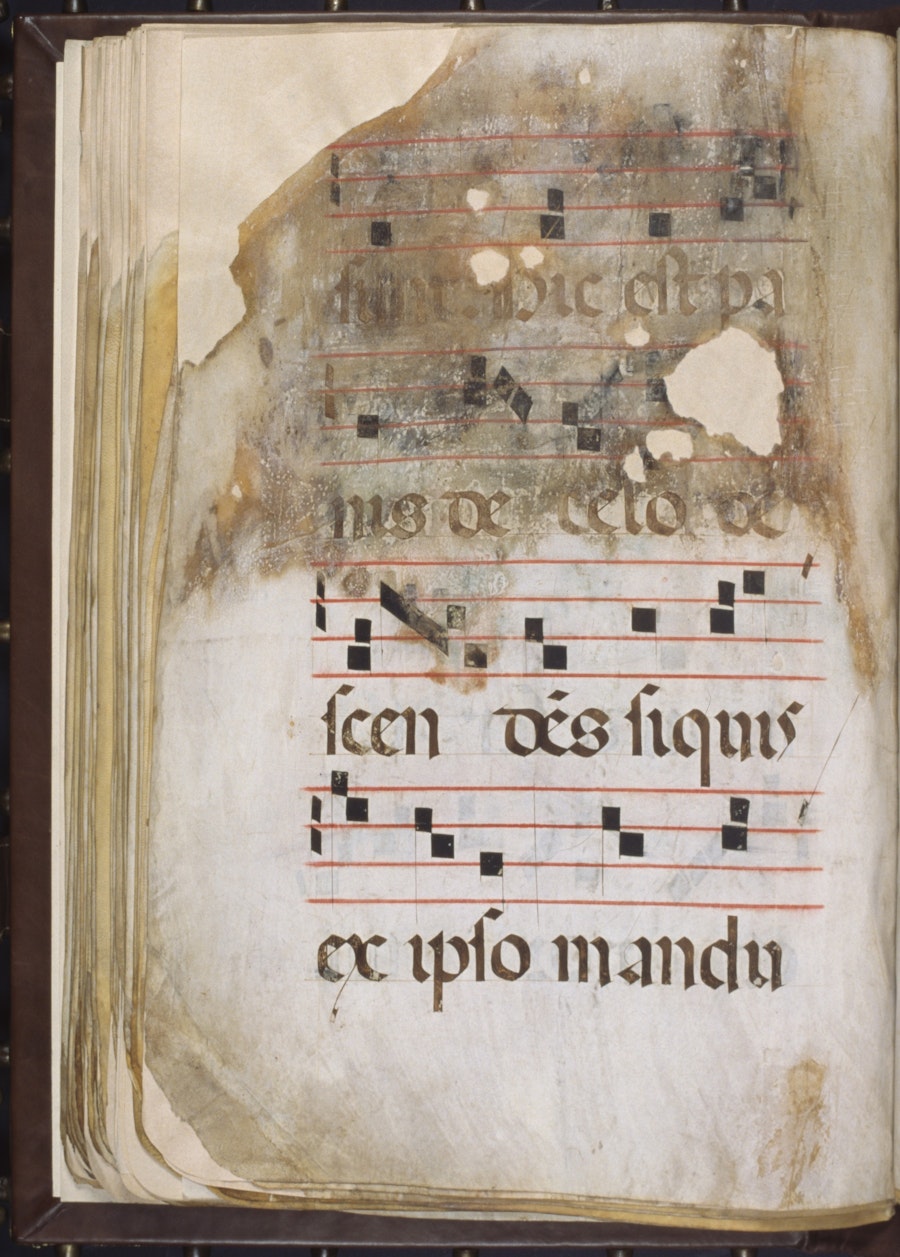 sunt. Hic est pa
nis de celo de
scen dēs siquis
ex ipso mandu